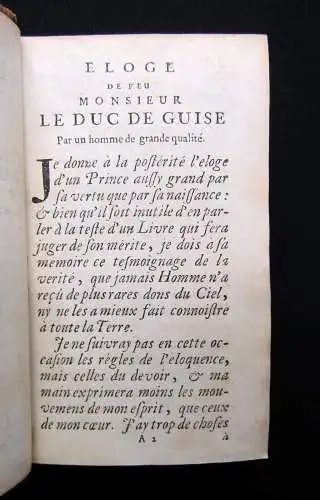 ELOGE
DE FEU
MONSIEUR
LE DUC DE GUISE
Par un homme de grande qualité.
Je donne à la postérité l'eloge
d'un Prince aussy grand par
sa vertu que par sa naissance :
& bien qu'il soit inutile d'en par-
ler à la teste d'un Livre qui fera
juger de son mérite, je dois a sa
memoire ce tesmoignage de la
verité, que jamais Homme n'a
reçû de plus rares dons du Ciel,
ny ne les a mieux fait connoistre
à toute la Terre.
Je ne suivray pas en cette oc-
casion les régles de l'eloquence,
mais celles du devoir, & ma
main exprimera moins les mou-
vemens de mon esprit, que ceux
de mon cœur. J'ay trop de choses
A 2 à